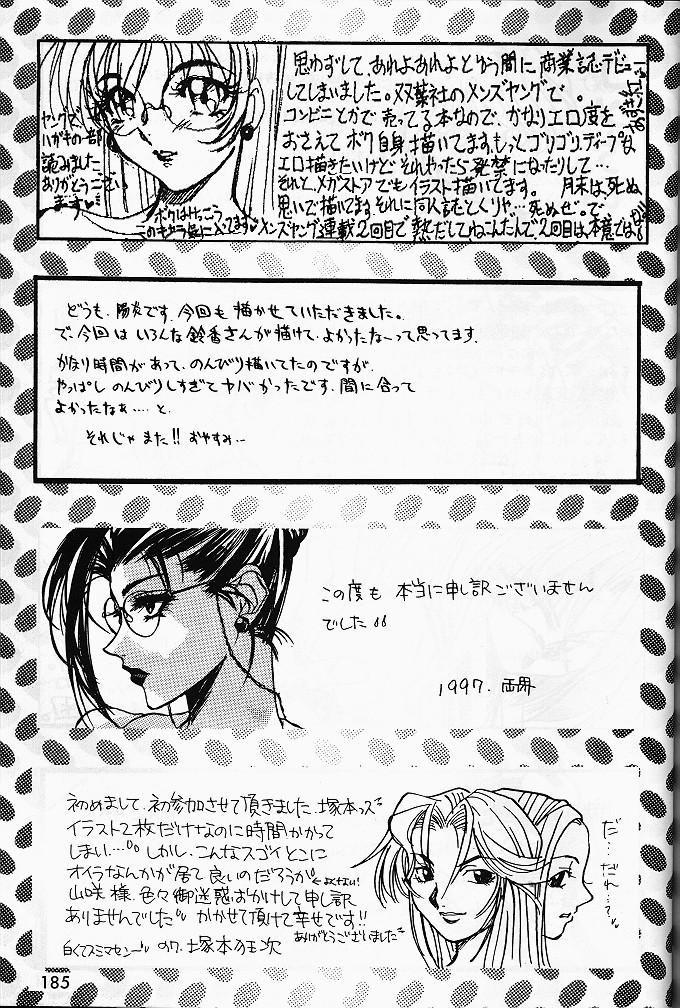 思わずして、あれよあれよとゆう間に商業誌デビュー
してしまいました。双葉社のメンズヤングで。
コンビニとかで売ってる本なので、かなりエロ度を
おさえてボク自身描いてます。もっとゴリゴリディープな
エロ描きたいけど、それやったら発禁になったりして…
それと、メガストアでもイラスト描いてます。月末は死ぬ
思いで描いてます。それに同人誌とくりゃ…死ぬぜ。で
メンズヤング連載2回目で熱だしてねこんだんで、2回目は、本意では
ヤングで、
ハガキの一部
読みました。
ありがとうござい
ます♡
ボクはけっこう
このキャラ気に入ってます♡
どうも、陽炎です、今回も描かせていただきました。
で、今回はいろんな鈴香さんが描けて、よかったなーって思ってます。
かなり時間があって、のんびり描いてたのですが、
やっぱしのんびりしすぎてヤバかったです、間に合って
よかったなぁ…。と、
それじゃまた!! おやすみ…
この度も 本当に申し訳ございません
でした
1997. 両界
初めまして、初参加させて頂きました、塚本っス
イラスト2枚だけなのに時間かかって
しまい…。しかし、こんなスゴイとこに
オイラなんかが居て良いのだろうか ←よくない!
山咲様、色々御迷惑ばかけして申し訳
ありませんでした かかせて頂けて幸せです!!
ありがとうございました
白くてスミマセン 塚本
だ…だれ…?
185